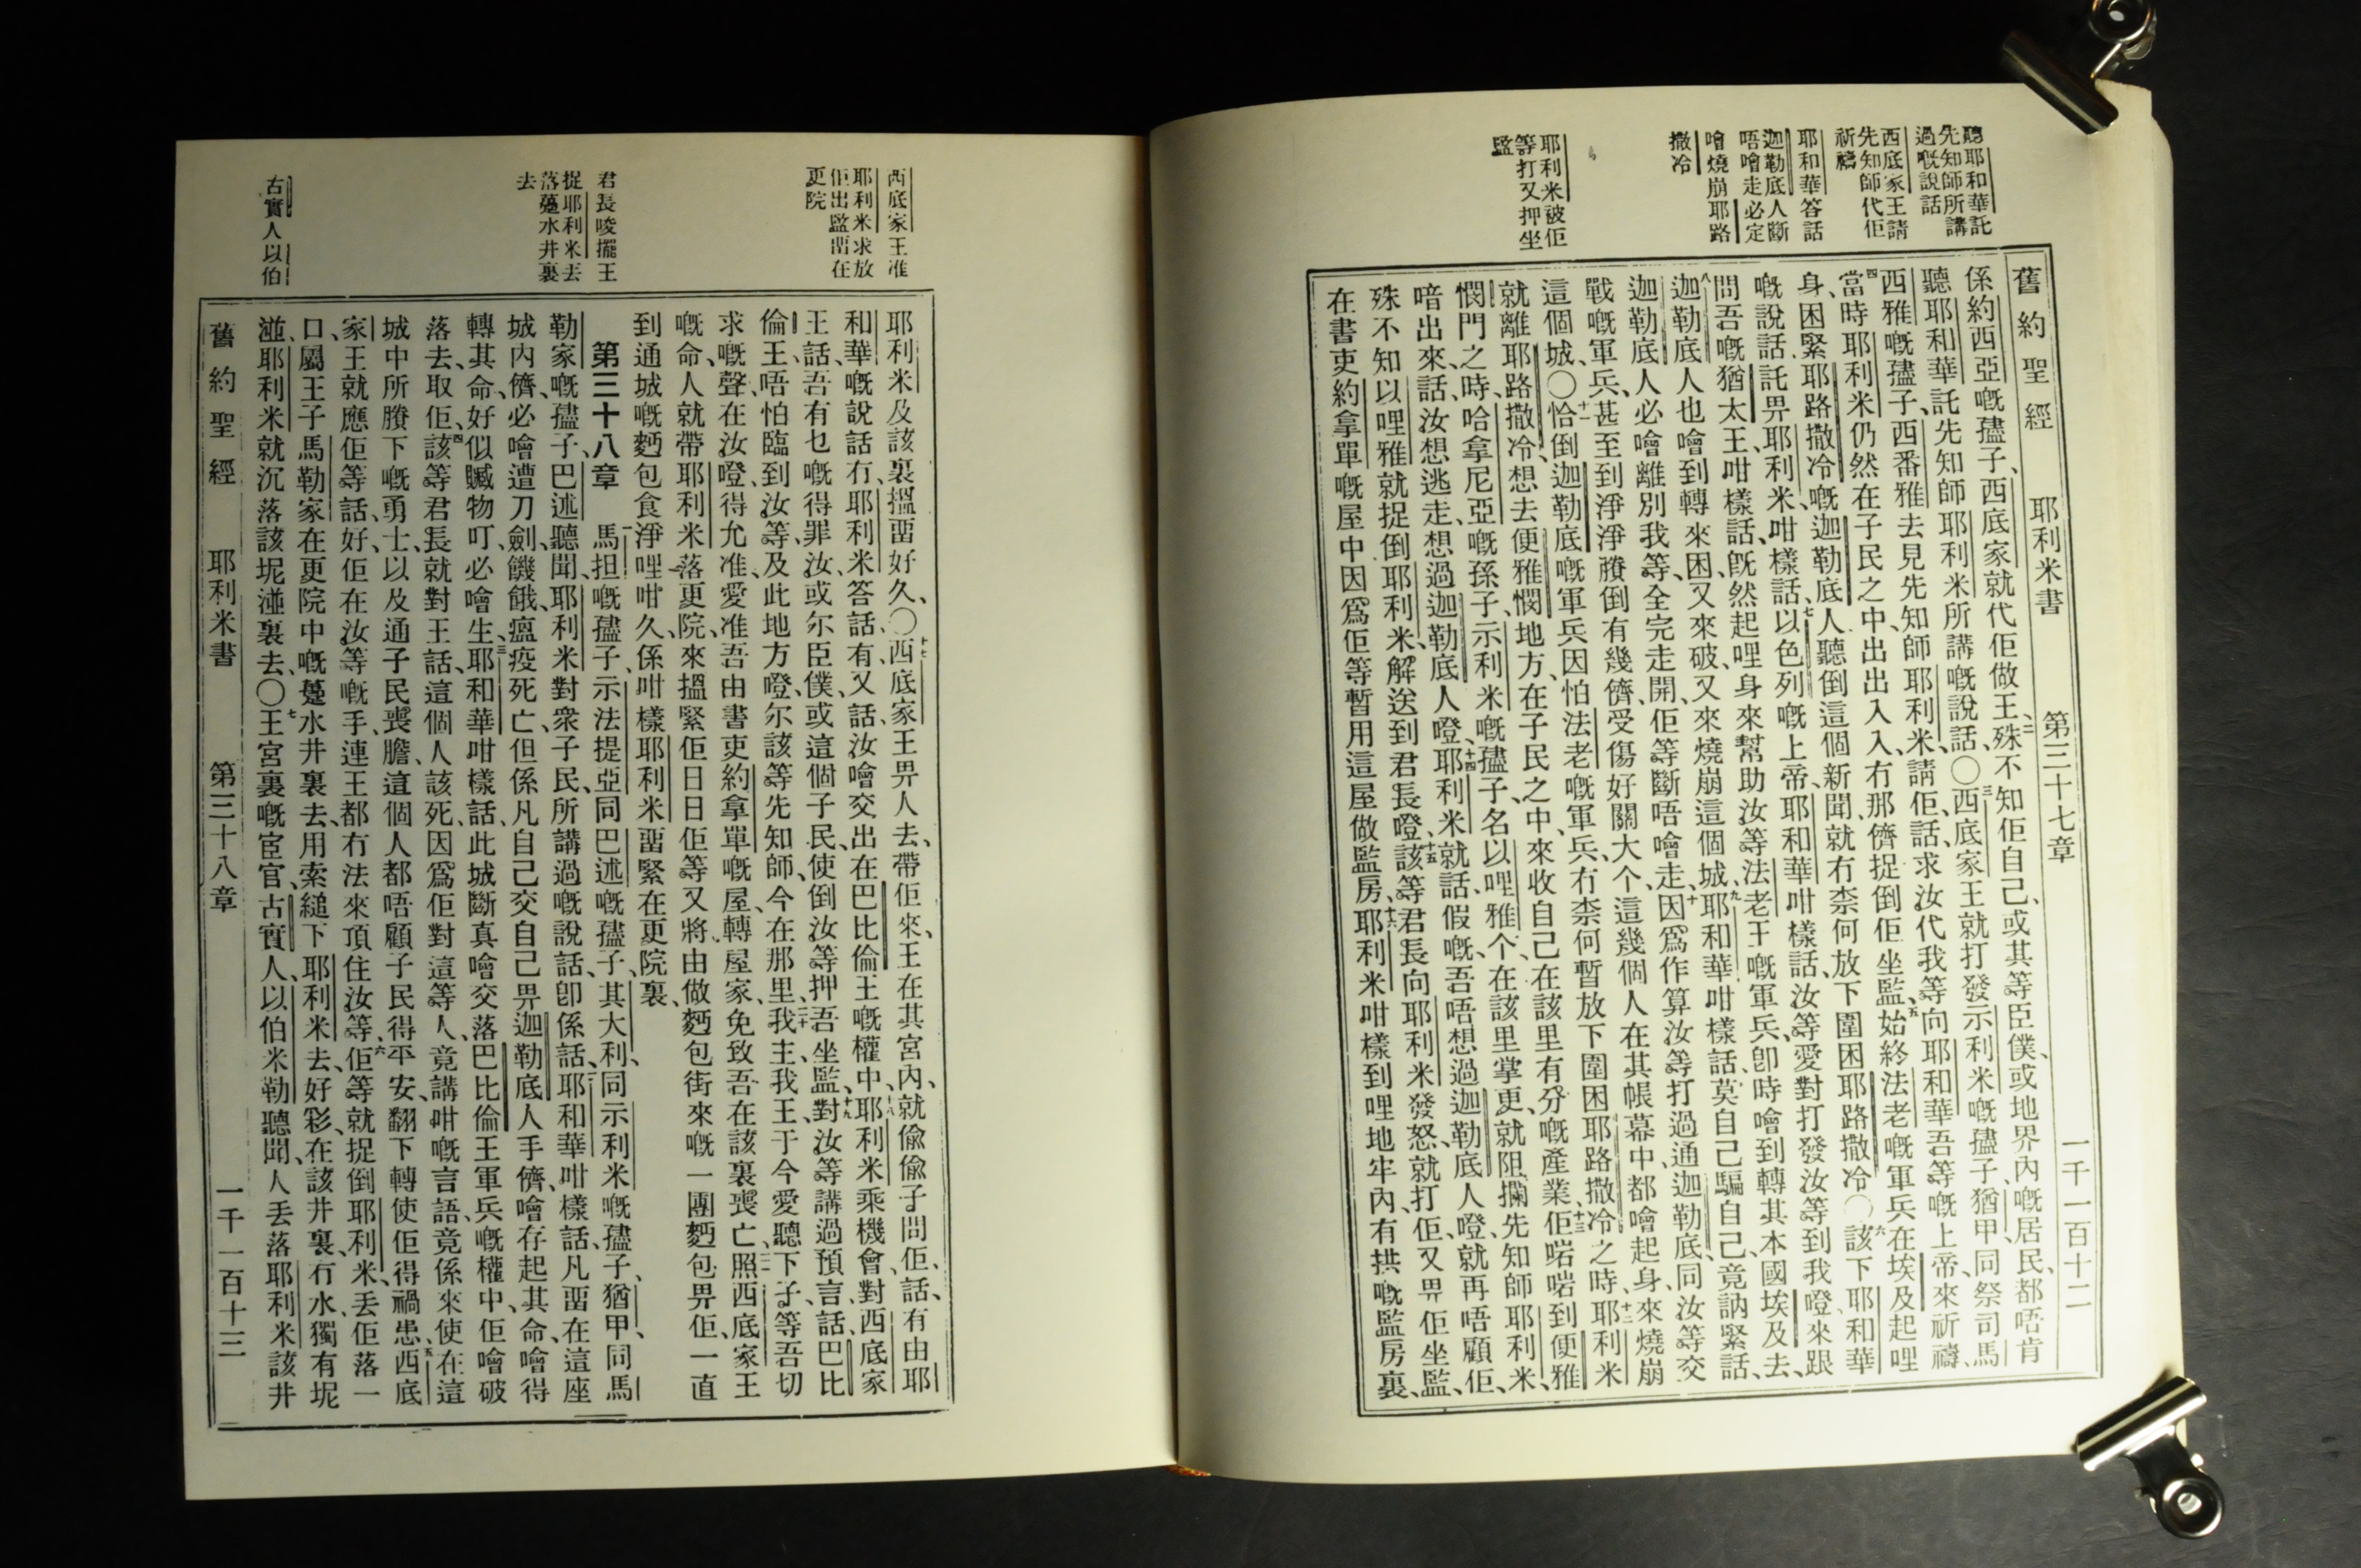 聽耶和華託
先知師所講
過嘅說話
西底家王請
先知師代佢
祈禱
耶和華答話
迦勒底人斷
唔噲走必定
噲燒崩耶路
撒冷
耶利米被佢
等打又押坐
監
舊約聖經 耶利米書 第三十七章 一千一百十二
係約西亞嘅孻子、西底家就代佢做王、二殊不知佢自己、或其等臣僕、或地界內嘅居民、都唔肯
聽耶和華託先知師耶利米所講嘅說話、〇三西底家王就打發示利米嘅孻子猶甲、同祭司馬
西雅嘅孻子、西番雅去見先知師耶利米、請佢、話、求汝代我等向耶和華吾等嘅上帝、來祈禱、
四當時耶利米仍然在子民之中、出出入入、冇那儕捉倒佢坐監、五始終法老嘅軍兵、在埃及起哩
身、困緊耶路撒冷嘅迦勒底人聽倒這個新聞、就冇柰何放下圍困耶路撒冷〇六該下耶和華
嘅說話、託畀耶利米、咁樣話、七以色列嘅上帝、耶和華咁樣話、汝等愛對打發汝等到我嘡、來跟
問吾嘅猶太王、咁樣話、旣然起哩身來幫助汝等、法老王嘅軍兵、卽時噲到轉其本國埃及去、
八迦勒底人也噲到轉來困、又來破、又來燒崩這個城、九耶和華咁樣話、莫自己騙自己、竟訥緊話、
迦勒底人必噲離別我等、全完走開、佢等斷唔噲走、十因爲作算汝等打過通迦勒底、同汝等交
戰嘅軍兵、甚至到淨淨賸倒有幾儕、受傷好關大个、這幾個人在其帳幕中、都噲起身、來燒崩
這個城、〇十一恰倒迦勒底嘅軍兵因怕法老嘅軍兵、冇柰何暫放下圍困耶路撒冷之時、十二耶利米
就離耶路撒冷、想去便雅憫地方、在子民之中、來收自己在該里有分嘅產業、十三佢啱啱到便雅
憫門之時、哈拿尼亞嘅孫子、示利米嘅孻子、名以哩雅个、在該里掌更、就阻攔先知師耶利米、
喑出來、話、汝想逃走、想過迦勒底人嘡、十四耶利米就話、假嘅、吾唔想過迦勒底人嘡、就再唔顧佢、
殊不知以哩雅就捉倒耶利米、解送到君長嘡、十五該等君長向耶利米發怒、就打佢、又畀佢坐監、
在書吏約拿單嘅屋中、因爲佢等暫用這屋做監房、十六耶利米咁樣到哩地牢內、有拱嘅監房裏、
西底家王准
耶利米求放
佢出監畱在
更院
君長唆擺王
捉耶利米去
落薹水井裏
去
古實人以伯
耶利米及該裏搵畱好久、〇十七西底家王畀人去、帶佢來、王在其宮內、就偸偸子問佢、話、有由耶
和華嘅說話冇、耶利米答話、有、又話、汝噲交出在巴比倫王嘅權中、十八耶利米乘機會對西底家
王話、吾有乜嘅得罪汝、或尔臣僕、或這個子民、使倒汝等押吾坐監、十九對汝等講過預言、話、巴比
倫王、唔怕臨到汝等、及此地方嘡、尔該等先知師、今在那里、二十我主、我王、于今愛聽下子、等吾切
求嘅聲、在汝嘡得允准、愛准吾由書吏約拿單嘅屋、轉屋家、免致吾在該裏喪亡、二一照西底家王
嘅命、人就帶耶利米落更院、來搵緊佢、日日佢等又將由做麫包街來嘅一團麫包畀佢、一直
到通城嘅麫包食淨哩咁久、係咁樣耶利米畱緊在更院裏、
第三十八章 一馬担嘅孻子、示法提亞同巴述嘅孻子、其大利、同示利米嘅孻子、猶甲、同馬
勒家嘅孻子、巴述聽聞、耶利米對衆子民、所講過嘅說話、卽係話、二耶和華咁樣話、凡畱在這座
城內儕、必噲遭刀劍、饑餓、瘟疫死亡、但係凡自己交自己畀迦勒底人手儕、噲存起其命、噲得
轉其命、好似贓物叮、必噲生、三耶和華咁樣話、此城斷真噲交落巴比倫王軍兵嘅權中、佢噲破
落去、取佢、四該等君長就對王話、這個人該死、因爲佢對這等人、竟講咁嘅言語、竟係來使在這
城中所賸下嘅勇士、以及通子民喪膽、這個人都唔顧子民得平安、翻下轉使佢得禍患、五西底
家王就應佢等話、好、佢在汝等嘅手、連王都冇法來頂住汝等、六佢等就捉倒耶利米、丟佢落一
口、屬王子馬勒家在更院中嘅薹水井裏去、用索縋下耶利米去、好彩、在該井裏、冇水、獨有坭
湴、耶利米就沉落該坭湴裏去、〇七王宮裏嘅宦官、古實人、以伯米勒聽聞、人丟落耶利米該井
舊約聖經 耶利米書 第三十八章 一千一百十三